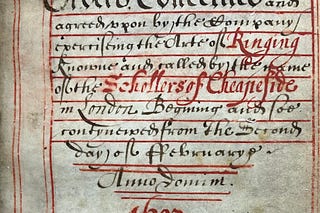 Orders Conceived and
agreed upon by the Company
exercising the Arte of Ringing
Knowne and called by the name
of the Schollers of Cheapeside
in London Begining and soe
contynewed from the Second
day of ffebruary
Anno domini